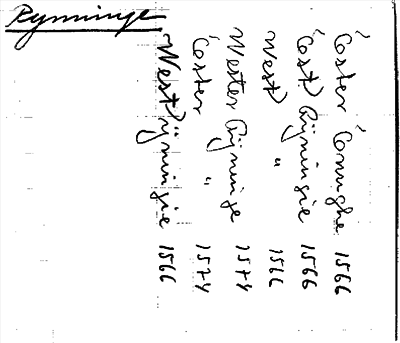 Rynninge
Öster 1566
Öst Rÿningie 1566
West " 1566
Wester Rÿninge 1574
Öster " 1574
West Rÿningie 1566